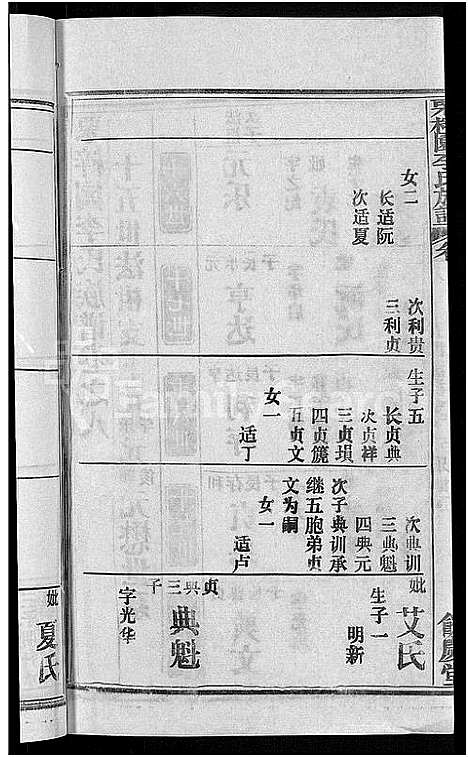 女二
长适阮
次适夏
次利贵
三利贞
生子五
长贞典
次贞祥
三贞埙
四贞篪
五贞文
女一
适丁
次典训
三典魁
四典元
次子典训承
继五胞弟贞
文为嗣
女一
适卢
妣
艾氏
生子一
明新
贞典三子
典魁
字光华
妣
夏氏